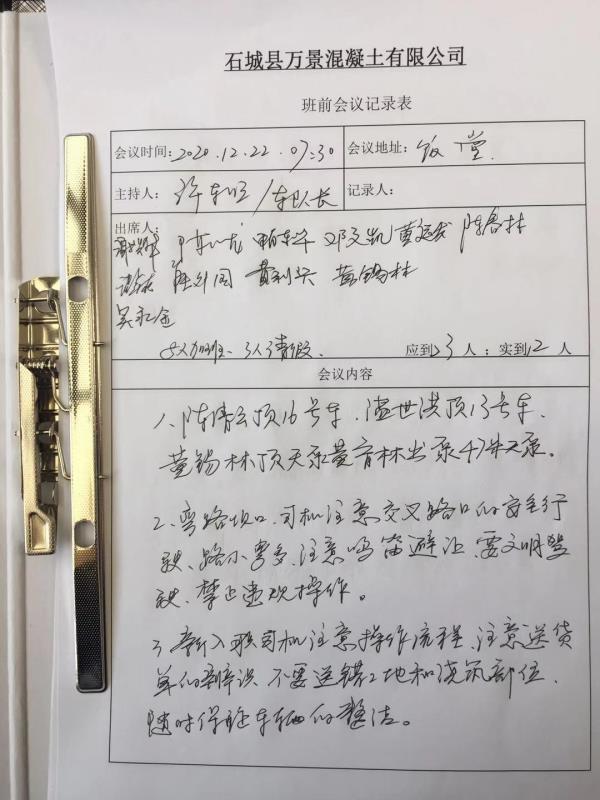 石城县万景混凝土有限公司
班前会议记录表
会议时间: 2020.12.22.07:30 会议地址: 饭堂.
主持人: 许东恒/车队长 记录人:
出席人:
黄利兴 黄锡林
吴礼金
5人加班、3人请假. 应到23人;实到12人
会议内容
1、陈清云顶16号车、温世洪顶13号车、
黄锡林顶天泵黄育林出泵47米天泵。
2、弯路坝口、司机注意交叉路口的安全行
驶、路小弯多、注意鸣笛避让、要文明驾
驶、禁止违规操作。
3、新入职司机注意操作流程、注意送货
单的辨识、不要送错工地和浇筑部位、
随时保验车辆的整洁。